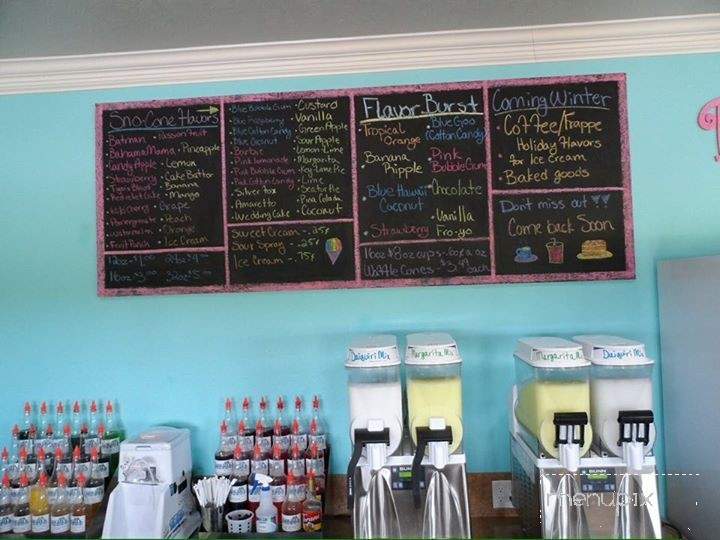 Sno-Cone Flavors
Batman
Bahama Mama
Candy Apple
Strawberry
Tiger's Blood
Red Velvet Cake
Kiwi Berry
Pomegranate
Watermelon
Fruit Punch
Passion fruit
Pineapple
Lemon
Cake Batter
Banana
Mango
Grape
Peach
Orange
Ice Cream
12oz
16oz $3.00
32oz $5.00
Blue Bubble Gum
Blue Raspberry
Blue Cotton Candy
Blue Coconut
Barbie
Pink Lemonade
Pink Bubble Gum
Pink Cotton Candy
Silver fox
Amaretto
Wedding Cake
Custard
Vanilla
Green Apple
Sour Apple
Lemon-Lime
Margarita
Key-Lime Pie
Lime
Pina Colada
Coconut
Sweet Cream - .25¢
Sour Spray - .25¢
Ice Cream - .75¢
Flavor Burst
Tropical
Orange
Banana
Ripple
Blue Hawaii
Coconut
Strawberry
Blue Goo
(Cotton Candy)
Pink
Bubble Gum
Chocolate
Vanilla
Fro-yo
Waffle Cones - $3.49 each
Coming Winter
Coffee/Frappe
Holiday Flavors
for Ice cream
Baked goods
Don't miss out
Come back Soon
Daiquiri Mix
Margarita Mix
Margarita Mix
Daiquiri Mix
BUNN
BUNN
menupix